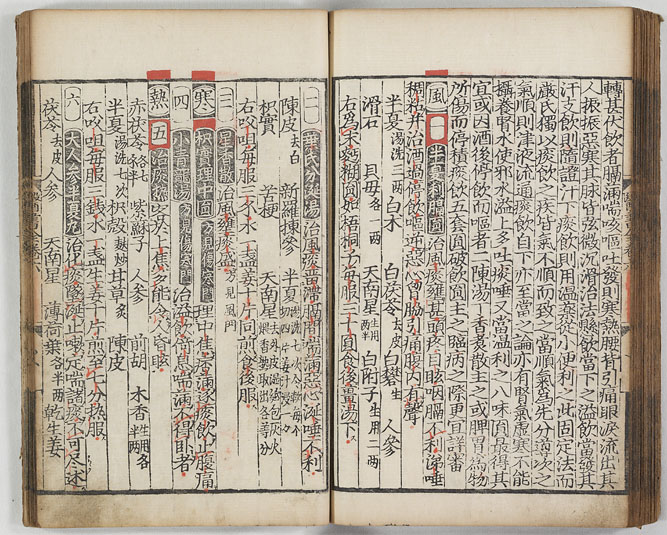 轉甚伏飲者膈滿喘咳嘔吐發則寒熱腰背引痛眼淚流出其
人振振惡寒其脉皆弦微沉滑治法懸飲當下之溢飲當發其
汗支飲則隨證汗下痰飲則用溫藥從小便利之此固定法而
嚴氏獨以痰飲之疾皆氣不順而致之當順氣為先分導次之
氣順則津液流通痰飲自下亦至當之論亦有腎氣虛寒不能
攝養腎水使邪水溢上多吐痰唾又當溫利之八味圓最得其
宜或因酒後停飲而嘔者二陳湯丁香散主之或脾胃為物
所傷而停積痰飲五套圓破飲圓主之臨病之際更宜詳審
風 一 半夏利膈圓 治風痰壅甚頭疼目眩咽膈不利涕唾
稠粘并治酒過停飲嘔逆惡心胸脇引痛腹內有聲
半夏湯洗二兩 白朮 白茯苓去皮 白礬生 人參
滑石 貝母各一兩 天南星生用兩半 白附子生用二兩
右為末麵糊圓如梧桐子每服三十圓食後薑湯下
二 氏分涎湯 治風痰留滯膈間喘滿惡心涎唾不利
陳皮去白 新羅揀參 半夏湯洗七次令軟每个切四片姜汁浸一夕
枳實 苦梗 天南星去外皮濕紙包灰火煨香熟取出各等分
右㕮咀每服三錢水一盞生姜十片同煎食後服
三 星香散 治風壅痰盛方見風門
寒 枳實理中圓方見傷寒門 理中焦除痞滿逐痰飲止腹痛
四 小青龍湯方見傷寒門 治溢飲倚息喘滿不得臥者
熱 五 客於上焦多能令人昏眩
赤茯苓 紫蘇子 人參 前胡 木香生用各半兩
半夏湯洗七次 枳殼麩炒 甘草炙 陳皮
右㕮咀每服三錢水一盞生姜十片煎至七分熱服
六 大人參半夏圓 治化痰墜涎止嗽定喘諸痰不可盡述
茯苓去皮 人參 天南星 薄荷葉各半兩 乾生姜